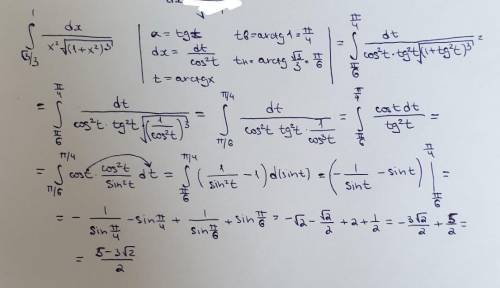 ∫_{√3/3}^{1} dx / (x² √(1+x²)³) | x = tgt  tв = arctg 1 = π/4 | = ∫_{π/6}^{π/4} dt / (cos²t · tg²t √(1+tg²t)³) =
dx = dt/cos²t  tн = arctg √3/3 = π/6
t = arctgx
= ∫_{π/6}^{π/4} dt / (cos²t · tg²t √(1/cos²t)³) = ∫_{π/6}^{π/4} dt / (cos²t tg²t · 1/cos³t) = ∫_{π/6}^{π/4} cost dt / tg²t =
= ∫_{π/6}^{π/4} cost · cos²t/sin²t dt = ∫_{π/6}^{π/4} (1/sin²t − 1) d(sint) = (−1/sint − sint) |_{π/6}^{π/4} =
= − 1/sin π/4 − sin π/4 + 1/sin π/6 + sin π/6 = −√2 − √2/2 + 2 + 1/2 = −3√2/2 + 5/2 =
= (5−3√2)/2